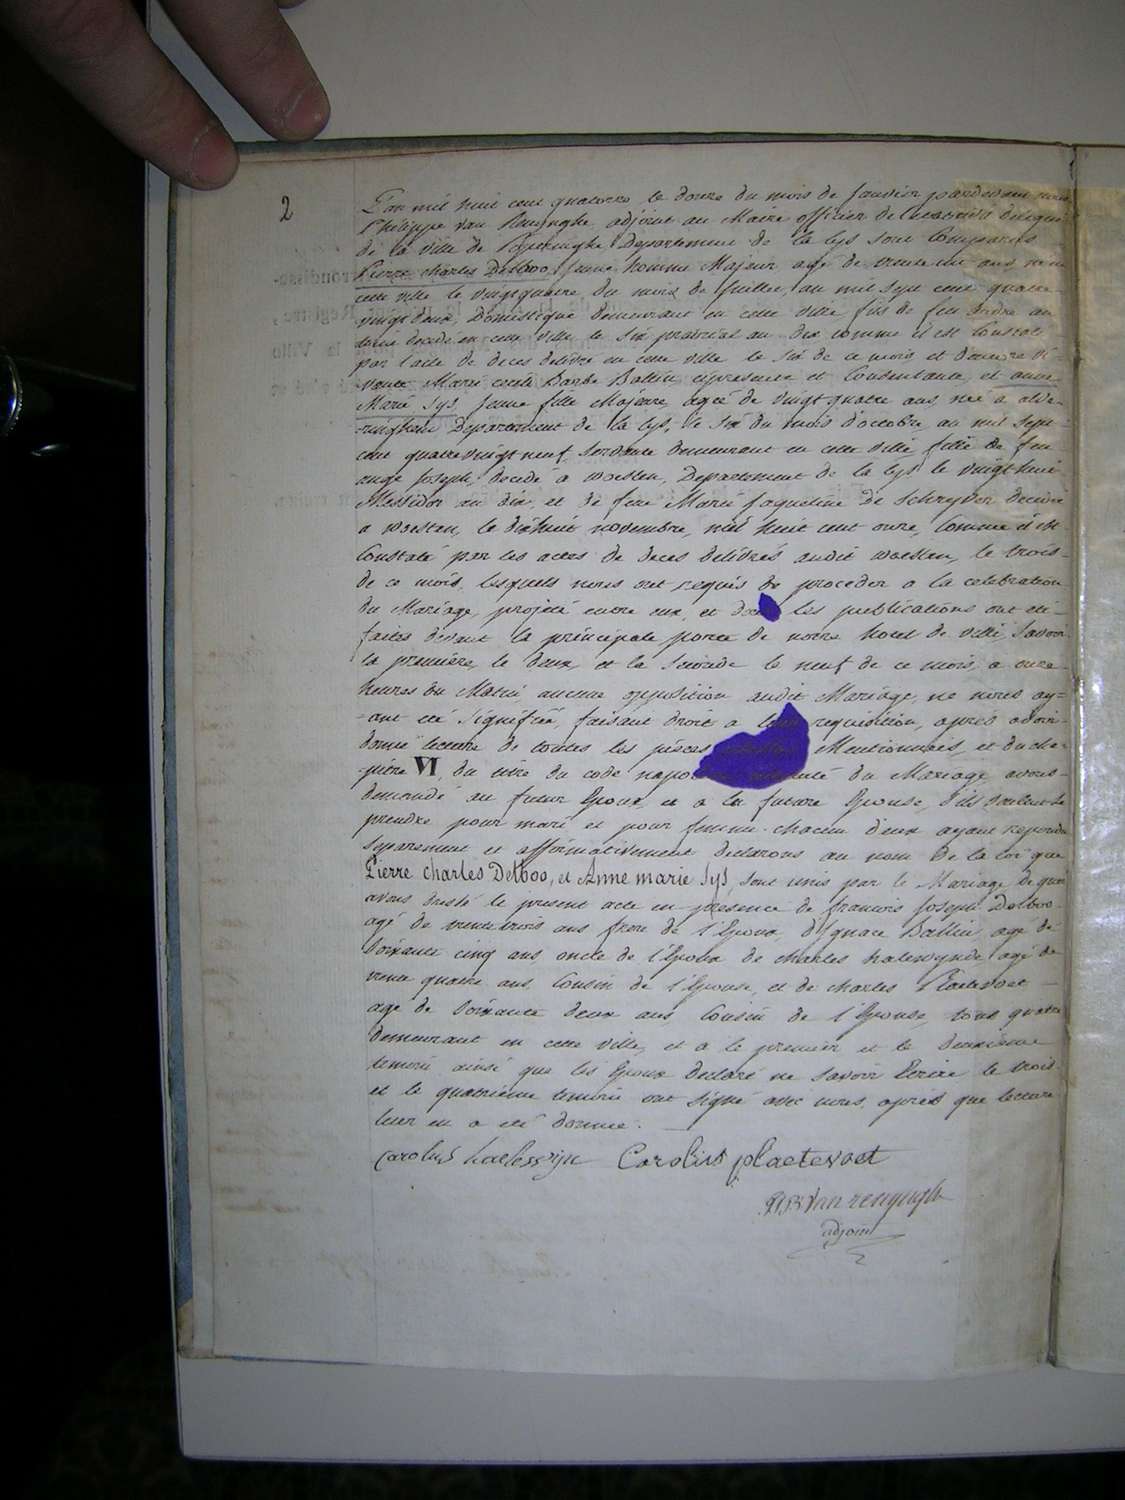 2
L'an mil huit cent quatorze le douze du mois de Janvier pardevant nous
Philippe Van Renynghe adjoint au Maire officier de l'etat civil délégué
de la ville de Poperinghe Departement de la Lys sont Comparus
Pierre charles Delboo, Jeune homme Majeur agé de trente un ans né en
cette ville le vingtquatre du mois de Juillet, an mil sept cent quatre-
vingt deux, Domestique demeurant en cette ville fils de feu
decedé en cette ville le six prairial an dix comme il est Constaté
par l'acte de deces delivré en cette ville le six de ce mois et d'encore vi-
vante Marie cecile Barbe Ballieu cipresente et Consentante, et anne
Marie Sys, Jeune fille Majeure, agée de vingt quatre ans, née a
Departement de la Lys, le six du mois d'octobre, an mil sept
cent quatrevingt neuf, Servante demeurant en cette ville fille de feu
Joseph, decedé a Woesten, Departement de la Lys le vingt huit
Messidor an dix, et de feue Marie Jaqueline de Schryver decedé
a Woesten, le dixhuit novembre, mil huit cent onze, Comme il est
Constaté par les actes de deces delivrés audit Woesten, le trois-
de ce mois, lesquels nous ont requis de proceder a la celebration
du Mariage, projeté entre eux, et dont les publications ont été-
faites devant la principale porte de notre hotel de ville, Savoir
la premiere, le deux et la Seconde le neuf de ce mois, a onze-
heures du Matin aucune opposition audit Mariage, ne nous ay-
-ant été Signifiée, faisant droit a leur requisition, aprés avoir-
donné lecture de toutes les pièces Mentionneés, et du cha-
-pitre VI, du titre du code du Mariage avons-
demandé au futur Epoux, et a la future Epouse, s'ils veulent se
prendre pour mari et pour femme. chacun d'eux ayant repondu
Separement et affirmativement declarons au nom de la loi que
Pierre charles Delboo, et Anne marie Sys, sont unis par le Mariage de quoi
avons dressé le present acte en presence de francois Joseph Delboo
agé de trente trois ans frere de l'Epoux, d'Ignace Ballieu, agé de
Soixante cinq ans, oncle de l'Epoux de charles halewynde, agé de
trente quatre ans, Cousin de l'Epouse, et de charles Plaetevoet -
agé de Soixante deux ans, Cousin de l'Epouse, tous quatre
demeurant en cette ville, et a le premier et le deuxième
temoin ainsi que les Epoux declaré ne Savoir Ecrire le trois-
et le quatrième temoin ont signé avec nous, aprés que lecture
leur en a été donnée.
Carolus plaetevoet
Van renynghe
adjoint